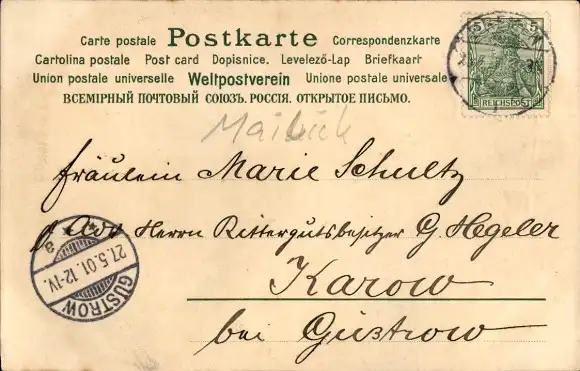 Carte postale Postkarte Correspondenzkarte
Cartolina postale Post card Dopisnice. Levelező-Lap Briefkaart
Union postale universelle Weltpostverein Unione postale universale
ВСЕМІРНЫЙ ПОЧТОВЫЙ СОЮЗЪ. РОССІЯ. ОТКРЫТОЕ ПИСЬМО.
5 5
REICHSPOST
Fräulein Marie Schultz
Adr Herrn Rittergutsbesitzer G. Hegeler
Karow
bei Güstrow
GÜSTROW
27.5.01.12-1V.
a